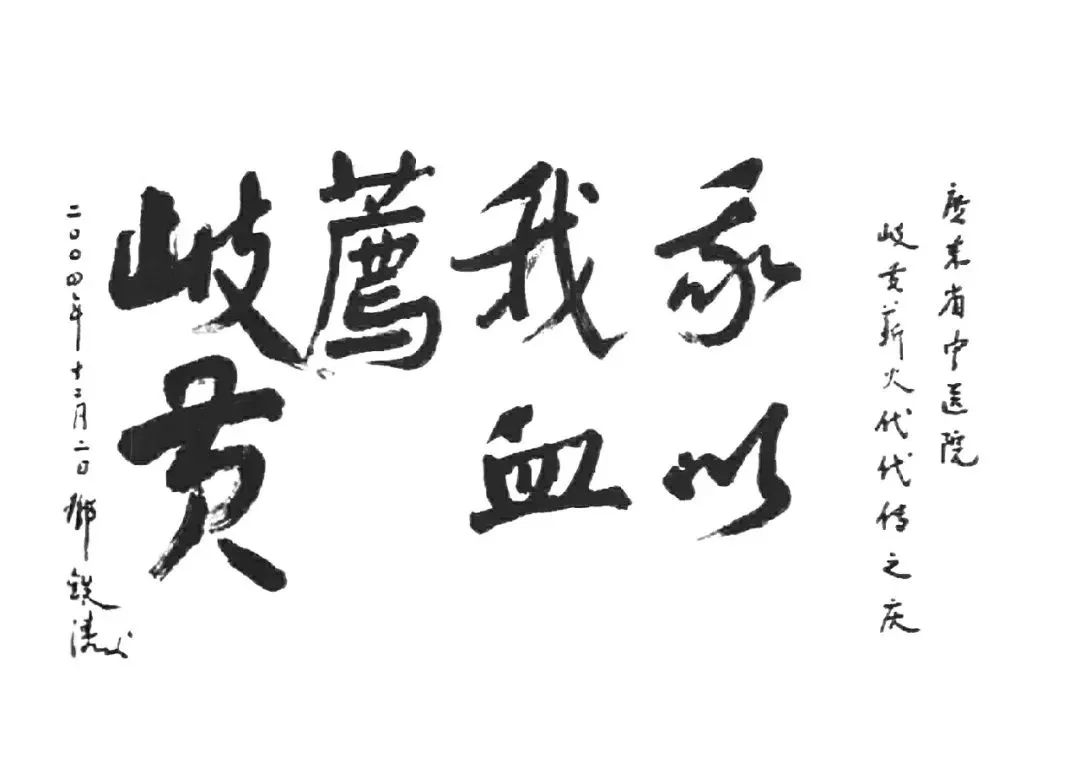 廣东省中医院
岐黄薪火代代传之庆
我以
我血
薦
岐黄
二〇〇四年十二月二日 鄧鉄涛